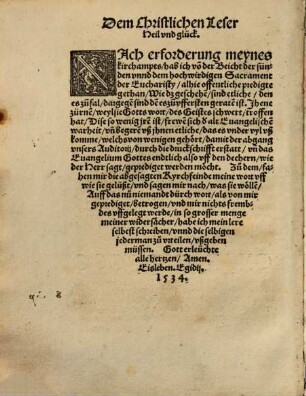 Dem Christlichen Leser
Heil vnd glück.
NAch erforderung meynes
kirchampts/ hab ich vō der Beicht der sün
den vnnd dem hochwirdigen Sacrament
der Eucharisty / alhie offentliche predigte
gethan/ Wie dz geschehē/ sind etliche / den
es zu fal/ dargegē sind dē es zu
zürnē/ weyl sie Gotts wort/ des Geistes schwert/ troffen
hat/
warheit/ etliche/ das es vnder vyl vß
komme/ welchs von wenigen gehört/ damit der abgang
vnsers Auditorij/ durch die druckschrifft erstatt/ vn̄ das
Euangelium Gottes endtlich also vff den dechern/ wie
der Herr sagt/ geprediget werden möcht. Zu dem/ fa-
hen mir die abgesagten Kyrchfeinde meine wort vff
wie sie gelüst/ vnd sagen mir nach/ was sie wöllē/
Auff das nū niemandt durch wort/ als von mir
geprediget/ betrogen/ vnd mir nichts frembs
des vffgelegt werde/ in so grosser menge
meiner widersächer/ habe ich mein lere
selbest schreiben/ vnnd die selbigen
jederman zu vrteilen/ vßgeben
müssen. Gott erleüchte
alle hertzen/ Amen.
Eisleben. Egidij.
1534.